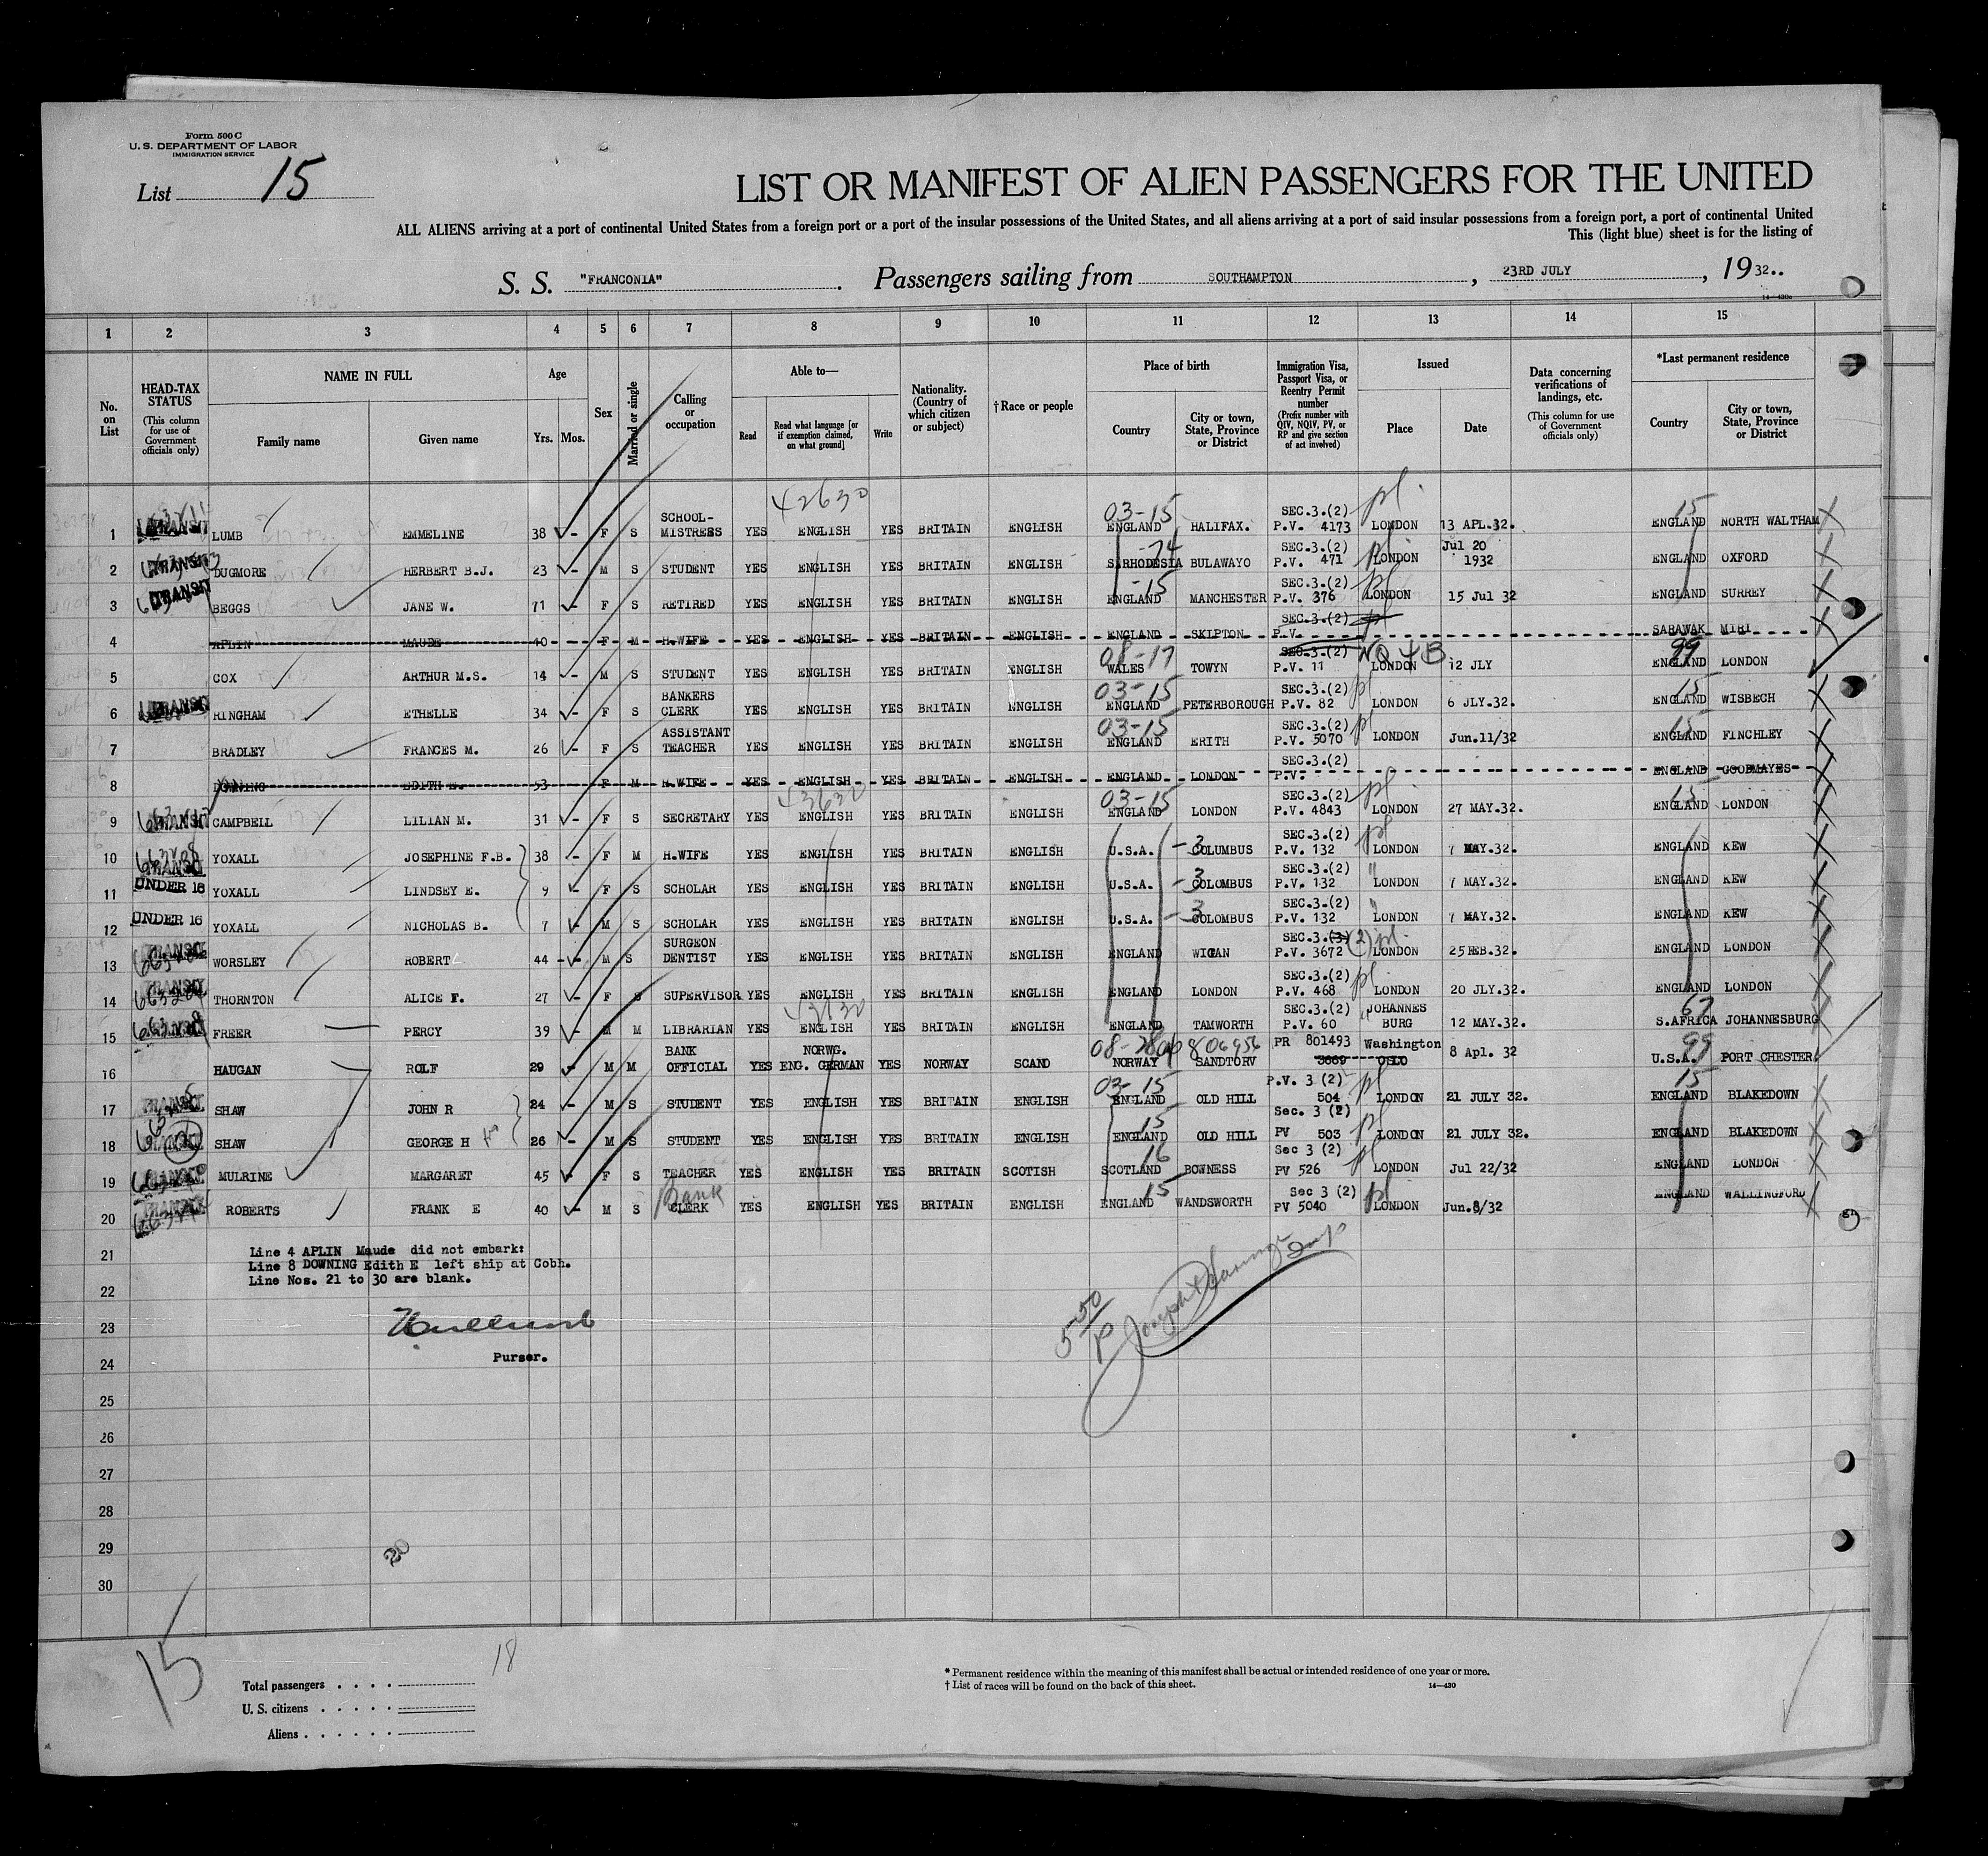 Form 500 C
U. S. DEPARTMENT OF LABOR
IMMIGRATION SERVICE
List 15
LIST OR MANIFEST OF ALIEN PASSENGERS FOR THE UNITED
ALL ALIENS arriving at a port of continental United States from a foreign port or a port of the insular possessions of the United States, and all aliens arriving at a port of said insular possessions from a foreign port, a port of continental United
This (light blue) sheet is for the listing of
S. S. "FRANCONIA" . Passengers sailing from SOUTHAMPTON , 23RD JULY , 19 32..
14—430a
1 2 3 4 5 6 7 8 9 10 11 12 13 14 15
No. on List
HEAD-TAX STATUS (This column for use of Government officials only)
NAME IN FULL
Family name Given name
Age
Yrs. Mos.
Sex
Married or single
Calling or occupation
Able to—
Read
Read what language [or if exemption claimed, on what ground]
Write
Nationality. (Country of which citizen or subject)
†Race or people
Place of birth
Country
City or town, State, Province or District
Immigration Visa, Passport Visa, or Reentry Permit number (Prefix number with QIV, NQIV, PV, or RP and give section of act involved)
Issued
Place Date
Data concerning verifications of landings, etc. (This column for use of Government officials only)
*Last permanent residence
Country
City or town, State, Province or District
42630 03-15 15
1 TRANSIT LUMB EMMELINE 38 - F S SCHOOL-MISTRESS YES ENGLISH YES BRITAIN ENGLISH ENGLAND HALIFAX. SEC.3.(2) P.V. 4173 pl. LONDON 13 APL.32. ENGLAND NORTH WALTHAM
-74
2 TRANSIT DUGMORE HERBERT B.J. 23 - M S STUDENT YES ENGLISH YES BRITAIN ENGLISH S.RHODESIA BULAWAYO SEC.3.(2) P.V. 471 pl LONDON Jul 20 1932 ENGLAND OXFORD
-15
3 TRANSIT BEGGS JANE W. 71 - F S RETIRED YES ENGLISH YES BRITAIN ENGLISH ENGLAND MANCHESTER SEC.3.(2) P.V. 376 pl LONDON 15 Jul 32 ENGLAND SURREY
4 APLIN MAUDE 40 - F M H.WIFE YES ENGLISH YES BRITAIN ENGLISH ENGLAND SKIPTON SEC.3.(2) P.V. SARAWAK MIRI
08-17 99
5 COX ARTHUR M.S. 14 - M S STUDENT YES ENGLISH YES BRITAIN ENGLISH WALES TOWYN SEC.3.(2) P.V. 11 LONDON 12 JLY ENGLAND LONDON
03-15 15
6 TRANSIT RINGHAM ETHELLE 34 - F S BANKERS CLERK YES ENGLISH YES BRITAIN ENGLISH ENGLAND PETERBOROUGH SEC.3.(2) P.V. 82 pl LONDON 6 JLY.32. ENGLAND WISBECH
03-15 15
7 BRADLEY FRANCES M. 26 - F S ASSISTANT TEACHER YES ENGLISH YES BRITAIN ENGLISH ENGLAND ERITH SEC.3.(2) P.V. 5070 pl LONDON Jun.11/32 ENGLAND FINCHLEY
8 DOWNING EDITH E. 53 F M H.WIFE YES ENGLISH YES BRITAIN ENGLISH ENGLAND LONDON SEC.3.(2) P.V. ENGLAND GOODMAYES
43630 03-15 15
9 CAMPBELL LILIAN M. 31 - F S SECRETARY YES ENGLISH YES BRITAIN ENGLISH ENGLAND LONDON SEC.3.(2) P.V. 4843 pl LONDON 27 MAY.32. ENGLAND LONDON
10 YOXALL JOSEPHINE F.B. 38 - F M H.WIFE YES ENGLISH YES BRITAIN ENGLISH U.S.A. -3 COLUMBUS SEC.3.(2) P.V. 132 pl LONDON 7 MAY.32. ENGLAND KEW
11 UNDER 16 YOXALL LINDSEY E. 9 - F S SCHOLAR YES ENGLISH YES BRITAIN ENGLISH U.S.A. -3 COLOMBUS SEC.3.(2) P.V. 132 " LONDON 7 MAY.32. ENGLAND KEW
12 UNDER 16 YOXALL NICHOLAS B. 7 M S SCHOLAR YES ENGLISH YES BRITAIN ENGLISH U.S.A. -3 COLOMBUS SEC.3.(2) P.V. 132 " LONDON 7 MAY.32. ENGLAND KEW
13 TRANSIT WORSLEY ROBERT 44 - M S SURGEON DENTIST YES ENGLISH YES BRITAIN ENGLISH ENGLAND WIGAN SEC.3.(3)(2) P.V. 3672 pl. LONDON 25 FEB.32. ENGLAND LONDON
14 TRANSIT THORNTON ALICE F. 27 F S SUPERVISOR YES ENGLISH YES BRITAIN ENGLISH ENGLAND LONDON SEC.3.(2) P.V. 468 pl LONDON 20 JLY.32. ENGLAND LONDON
67
15 FREER PERCY 39 M M LIBRARIAN YES ENGLISH YES BRITAIN ENGLISH ENGLAND TAMWORTH SEC.3.(2) P.V. 60 " JOHANNES BURG 12 MAY.32. S.AFRICA JOHANNESBURG
806956 99
16 HAUGAN ROLF 29 - M M BANK OFFICIAL YES NORWG. ENG. GERMAN YES NORWAY SCAND NORWAY SANDTORV PR 801493 3669 Washington OSLO 8 Apl. 32 U.S.A. PORT CHESTER
03-15 15
17 SHAW JOHN R 24 - M S STUDENT YES ENGLISH YES BRITAIN ENGLISH ENGLAND OLD HILL P.V. 3 (2) 504 pl LONDON 21 JULY 32. ENGLAND BLAKEDOWN
15
18 SHAW GEORGE H 26 - M S STUDENT YES ENGLISH YES BRITAIN ENGLISH ENGLAND OLD HILL Sec. 3 (2) PV 503 pl LONDON 21 JULY 32. ENGLAND BLAKEDOWN
16
19 MULRINE MARGARET 45 - F S TEACHER YES ENGLISH YES BRITAIN SCOTISH SCOTLAND BOWNESS Sec 3 (2) PV 526 pl LONDON Jul 22/32 ENGLAND LONDON
15
20 ROBERTS FRANK E 40 - M S Bank CLERK YES ENGLISH YES BRITAIN ENGLISH ENGLAND WANDSWORTH Sec 3 (2) PV 5040 pl LONDON Jun.8/32 ENGLAND WALLINGFORD
21 Line 4 APLIN Maude did not embark:
Line 8 DOWNING Edith E left ship at Cobh.
Line Nos. 21 to 30 are blank.
22
23
Purser.
24
25
26
27
28
29 20
30
15
18
Total passengers . . . .
U. S. citizens . . . . .
Aliens . . . . . .
* Permanent residence within the meaning of this manifest shall be actual or intended residence of one year or more.
† List of races will be found on the back of this sheet.
14—430